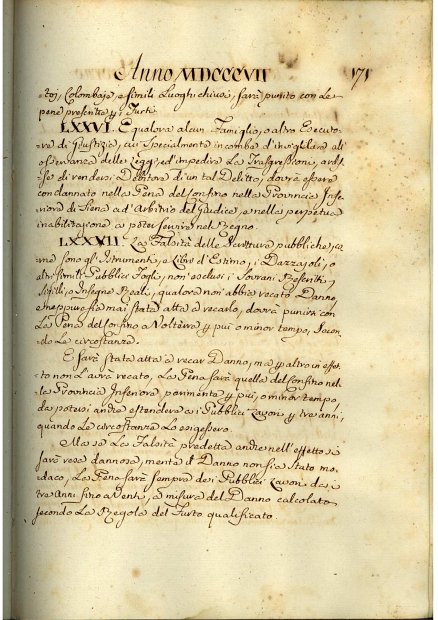 Anno MDCCCVII 171
toj, Colombaje, e simili Luoghi chiusi, sarà punito con le
pene prescritte p i furti.
LXXVI. Equalora alcun Famiglio, o altro Esecuto-
re di Giustizia, cui specialmente incomba d'invigilare all'
osservanza delle Leggi, ed impedire la Trasgressioni, ardis-
se di rendersi Debitore di un tal Delitto, dovrà essere
condannato nella Pena del confino nella Provincia Infe-
riore di Siena ad Arbitrio del Giudice, e nella perpetua
inabilitazione a poter servire nel Regno.
LXXVII. La Falsità delle Scritture pubbliche, co-
me sono gl'Istrumenti, e Libri d'Estimo, i Dazzajoli, o
altri simili Pubblici Fogli, non esclusi i Sovrani Rescritti,
Sigilli, o Insegne Reali, qualora non abbia recato Danno,
e neppure sia mai stata atta a recarlo, dovrà punirsi con
la Pena del confino a Volterra p più o minor tempo, secon-
do le circostanze.
E sarà stata atta a recar Danno, ma p altro in effet-
to non l'avrà recato, la Pena sarà quella del confino nel-
la Provincia Inferiore parimente p più, o minor tempo,
da potersi anche estendere ai Pubblici Lavori p tre anni,
quando le circostanze lo esigessero.
Ma se la Falsità predetta anche nell'effetto si
sarà resa dannosa, mentre il Danno non sia stato mo-
daco, la Pena sarà sempre dei Pubblici Lavori da i
tre Anni fino a Venti, a misura del Danno calcolato
secondo la Regola del Furto qualificato.